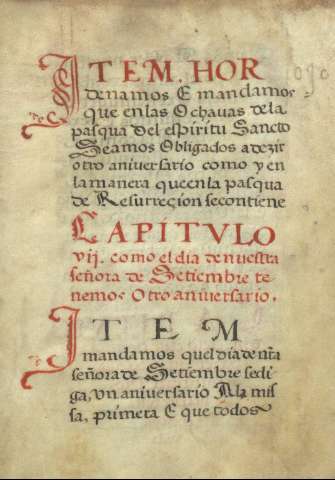 ITEM. HOR
denamos E mandamos
que en las Ochavas de la
pasqua del espiritu Sancto
Seamos Obligados a dezir
otro aniversario como y en
la manera que en la pasqua
de Resurreçion se contiene
CAPITVLO
vij. como el dia de nuestra
señora de Setiembre te
nemos Otro aniversario.
ITEM
mandamos quel dia de nra
señora de Setiembre se di
ga, vn aniversario A la mis
sa, primera E que todos